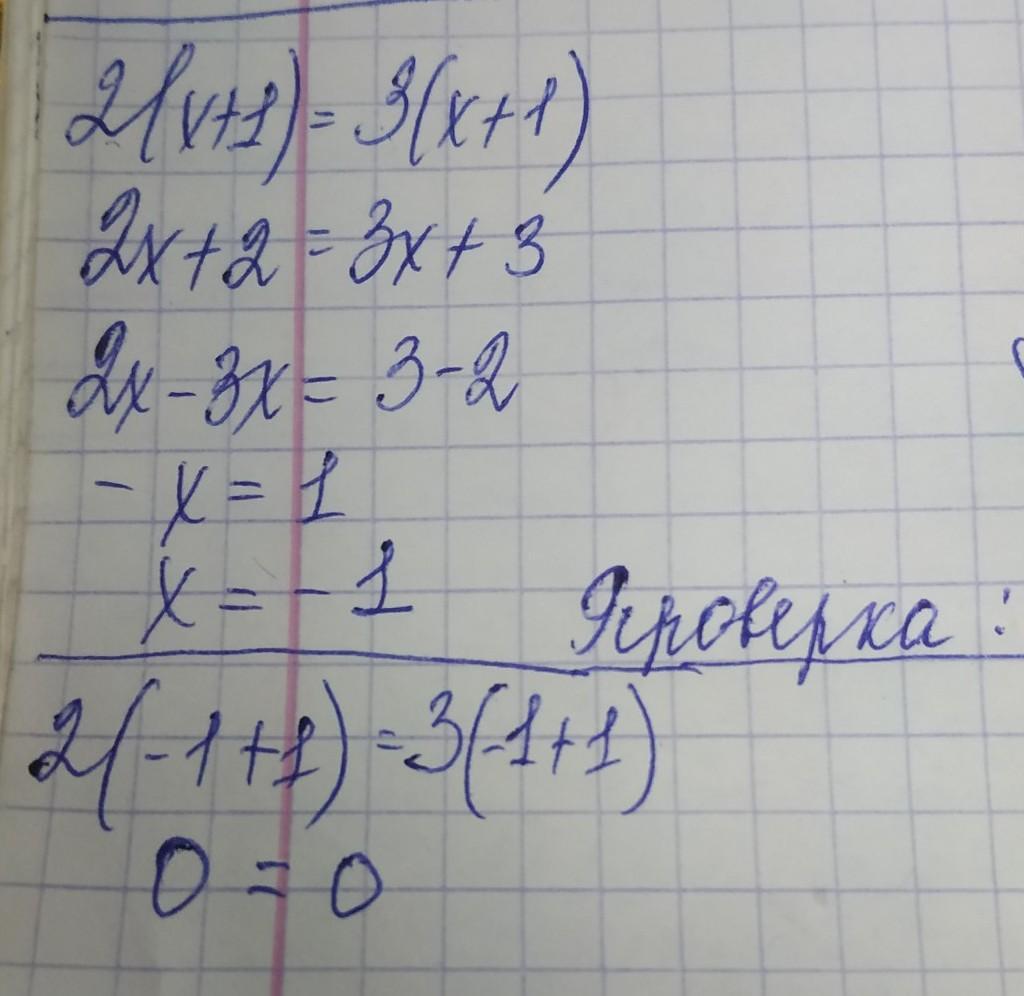 2(x+1) = 3(x+1)
2x+2 = 3x+3
2x-3x = 3-2
-x = 1
x = -1
Проверка:
2(-1+1) = 3(-1+1)
0 = 0